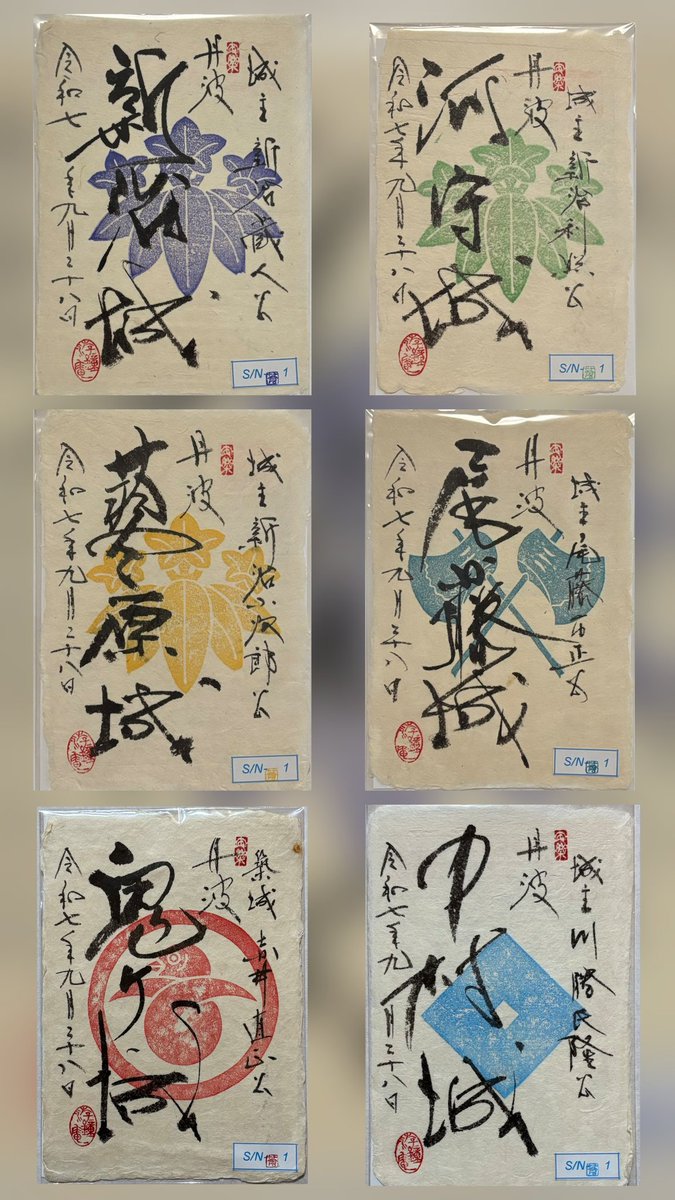 城主 新治蔵人公
丹波
新治城
令和七年九月二十八日
S/N- 1
城主 新治利公
丹波
河守城
令和七年九月二十八日
S/N- 1
城主 新治小次郎公
丹波
蓼原城
令和七年九月二十八日
S/N- 1
城主 尾藤正公
丹波
尾藤城
令和七年九月二十八日
S/N- 1
築城 赤井直正公
丹波
鬼ヶ城
令和七年九月二十八日
S/N- 1
城主 川勝氏隆公
丹波
中村城
令和七年九月二十八日
S/N- 1